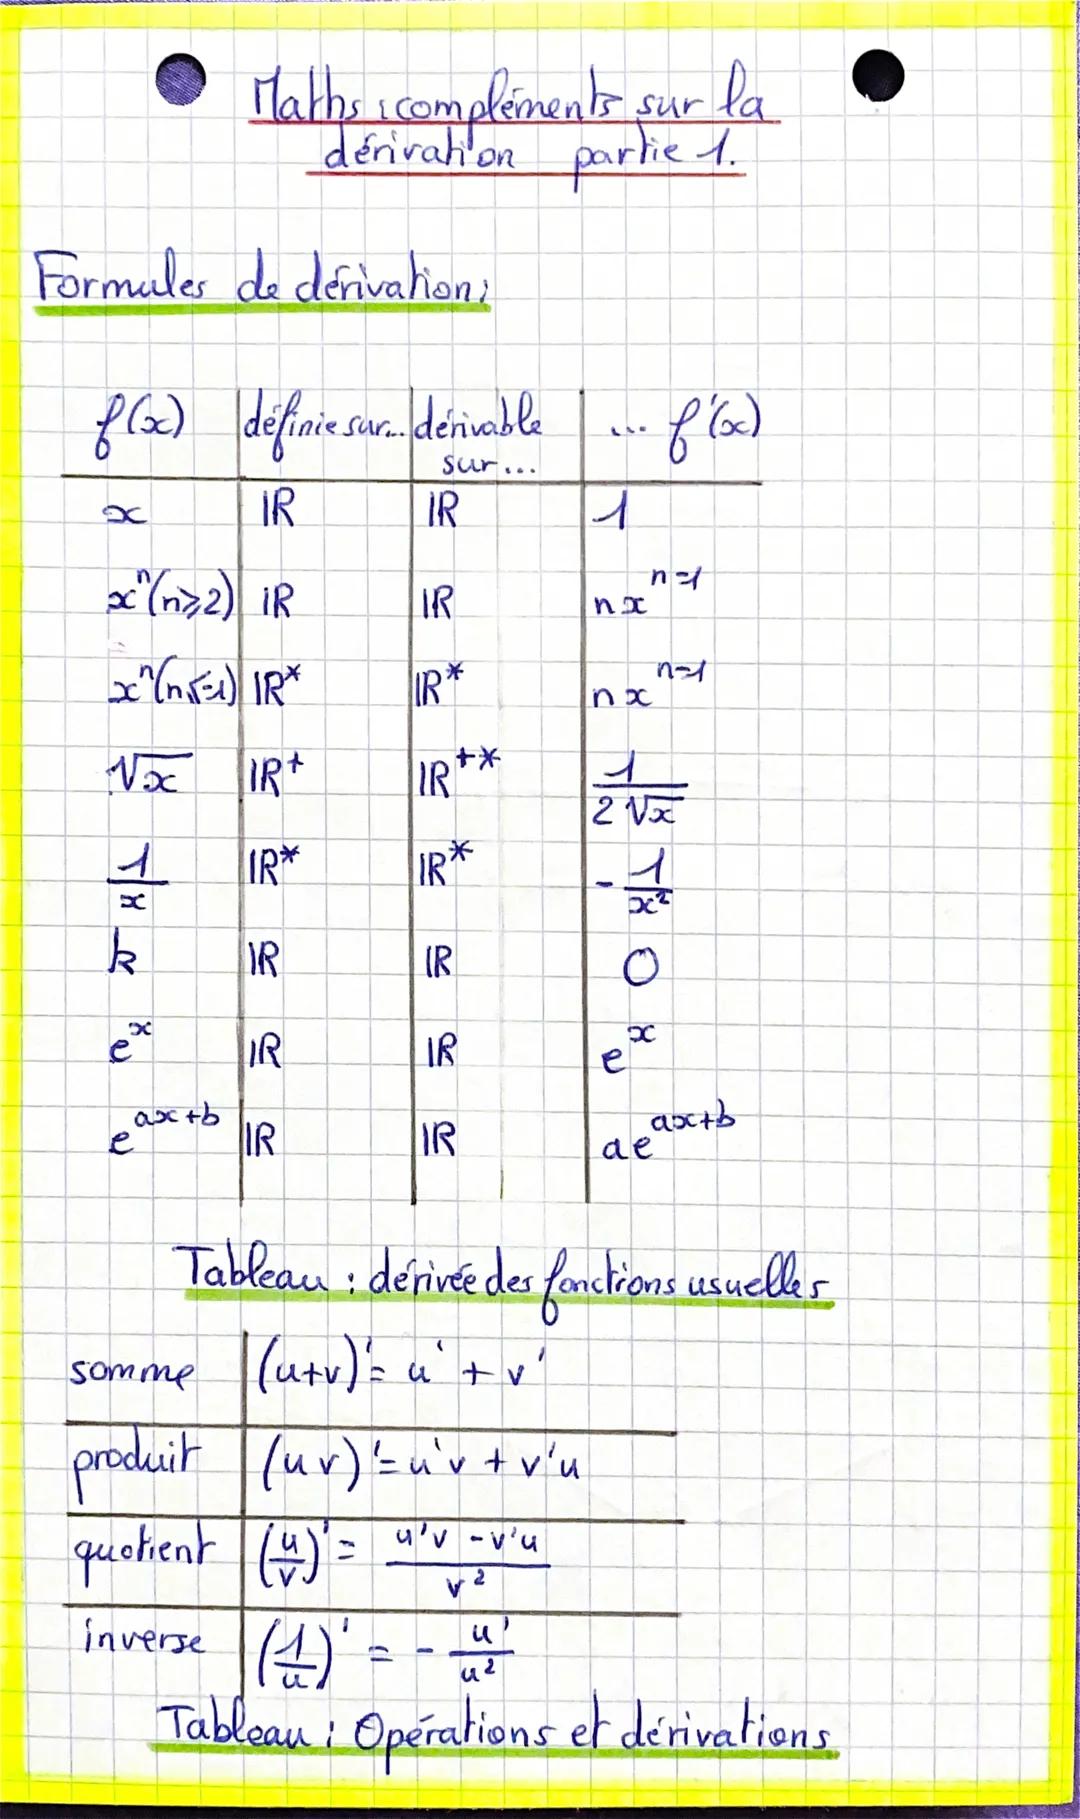 Maths : compléments sur la
dérivation partie 1.
Formules de dérivation :
f(x) définie sur... dérivable sur... ... f'(x)
x ℝ ℝ 1
xⁿ(n≥2) ℝ ℝ nxⁿ⁻¹
xⁿ(n≤-1) ℝ* ℝ* nxⁿ⁻¹
√x ℝ⁺ ℝ⁺* 1/(2√x)
1/x ℝ* ℝ* -1/x²
k ℝ ℝ 0
e^x ℝ ℝ e^x
e^(ax+b) ℝ ℝ ae^(ax+b)
Tableau : dérivée des fonctions usuelles
somme (u+v)' = u' + v'
produit (uv)' = u'v + v'u
quotient (u/v)' = (u'v - v'u)/v²
inverse (1/u)' = - u'/u²
Tableau : Opérations et dérivations